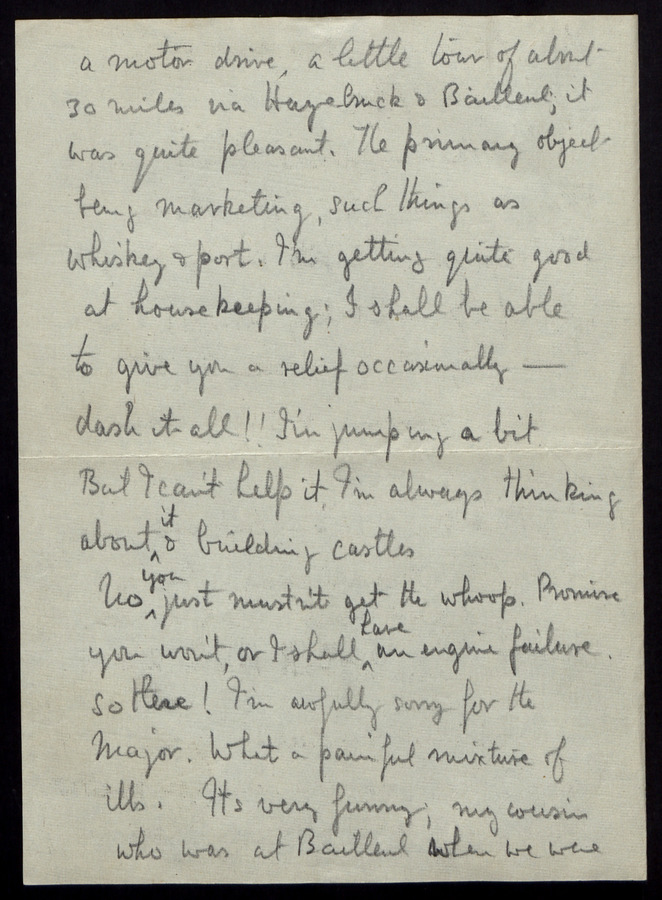 a motor drive, a little tour of about
30 miles via Hazebruck & Bailleul; it
was quite pleasant. The primary object
being marketing, such things as
whiskey & port. I'm getting quite good
at housekeeping; I shall be able
to give you a relief occasionally —
dash it all!! I'm jumping a bit
But I can't help it, I'm always thinking
about it & building castles
No you just mustn't get the whoop. Promise
you won't, or I shall have an engine failure.
so there! I'm awfully sorry for the
Major. What a painful mixture of
ills. It's very funny; my cousin
who was at Bailleul when we were